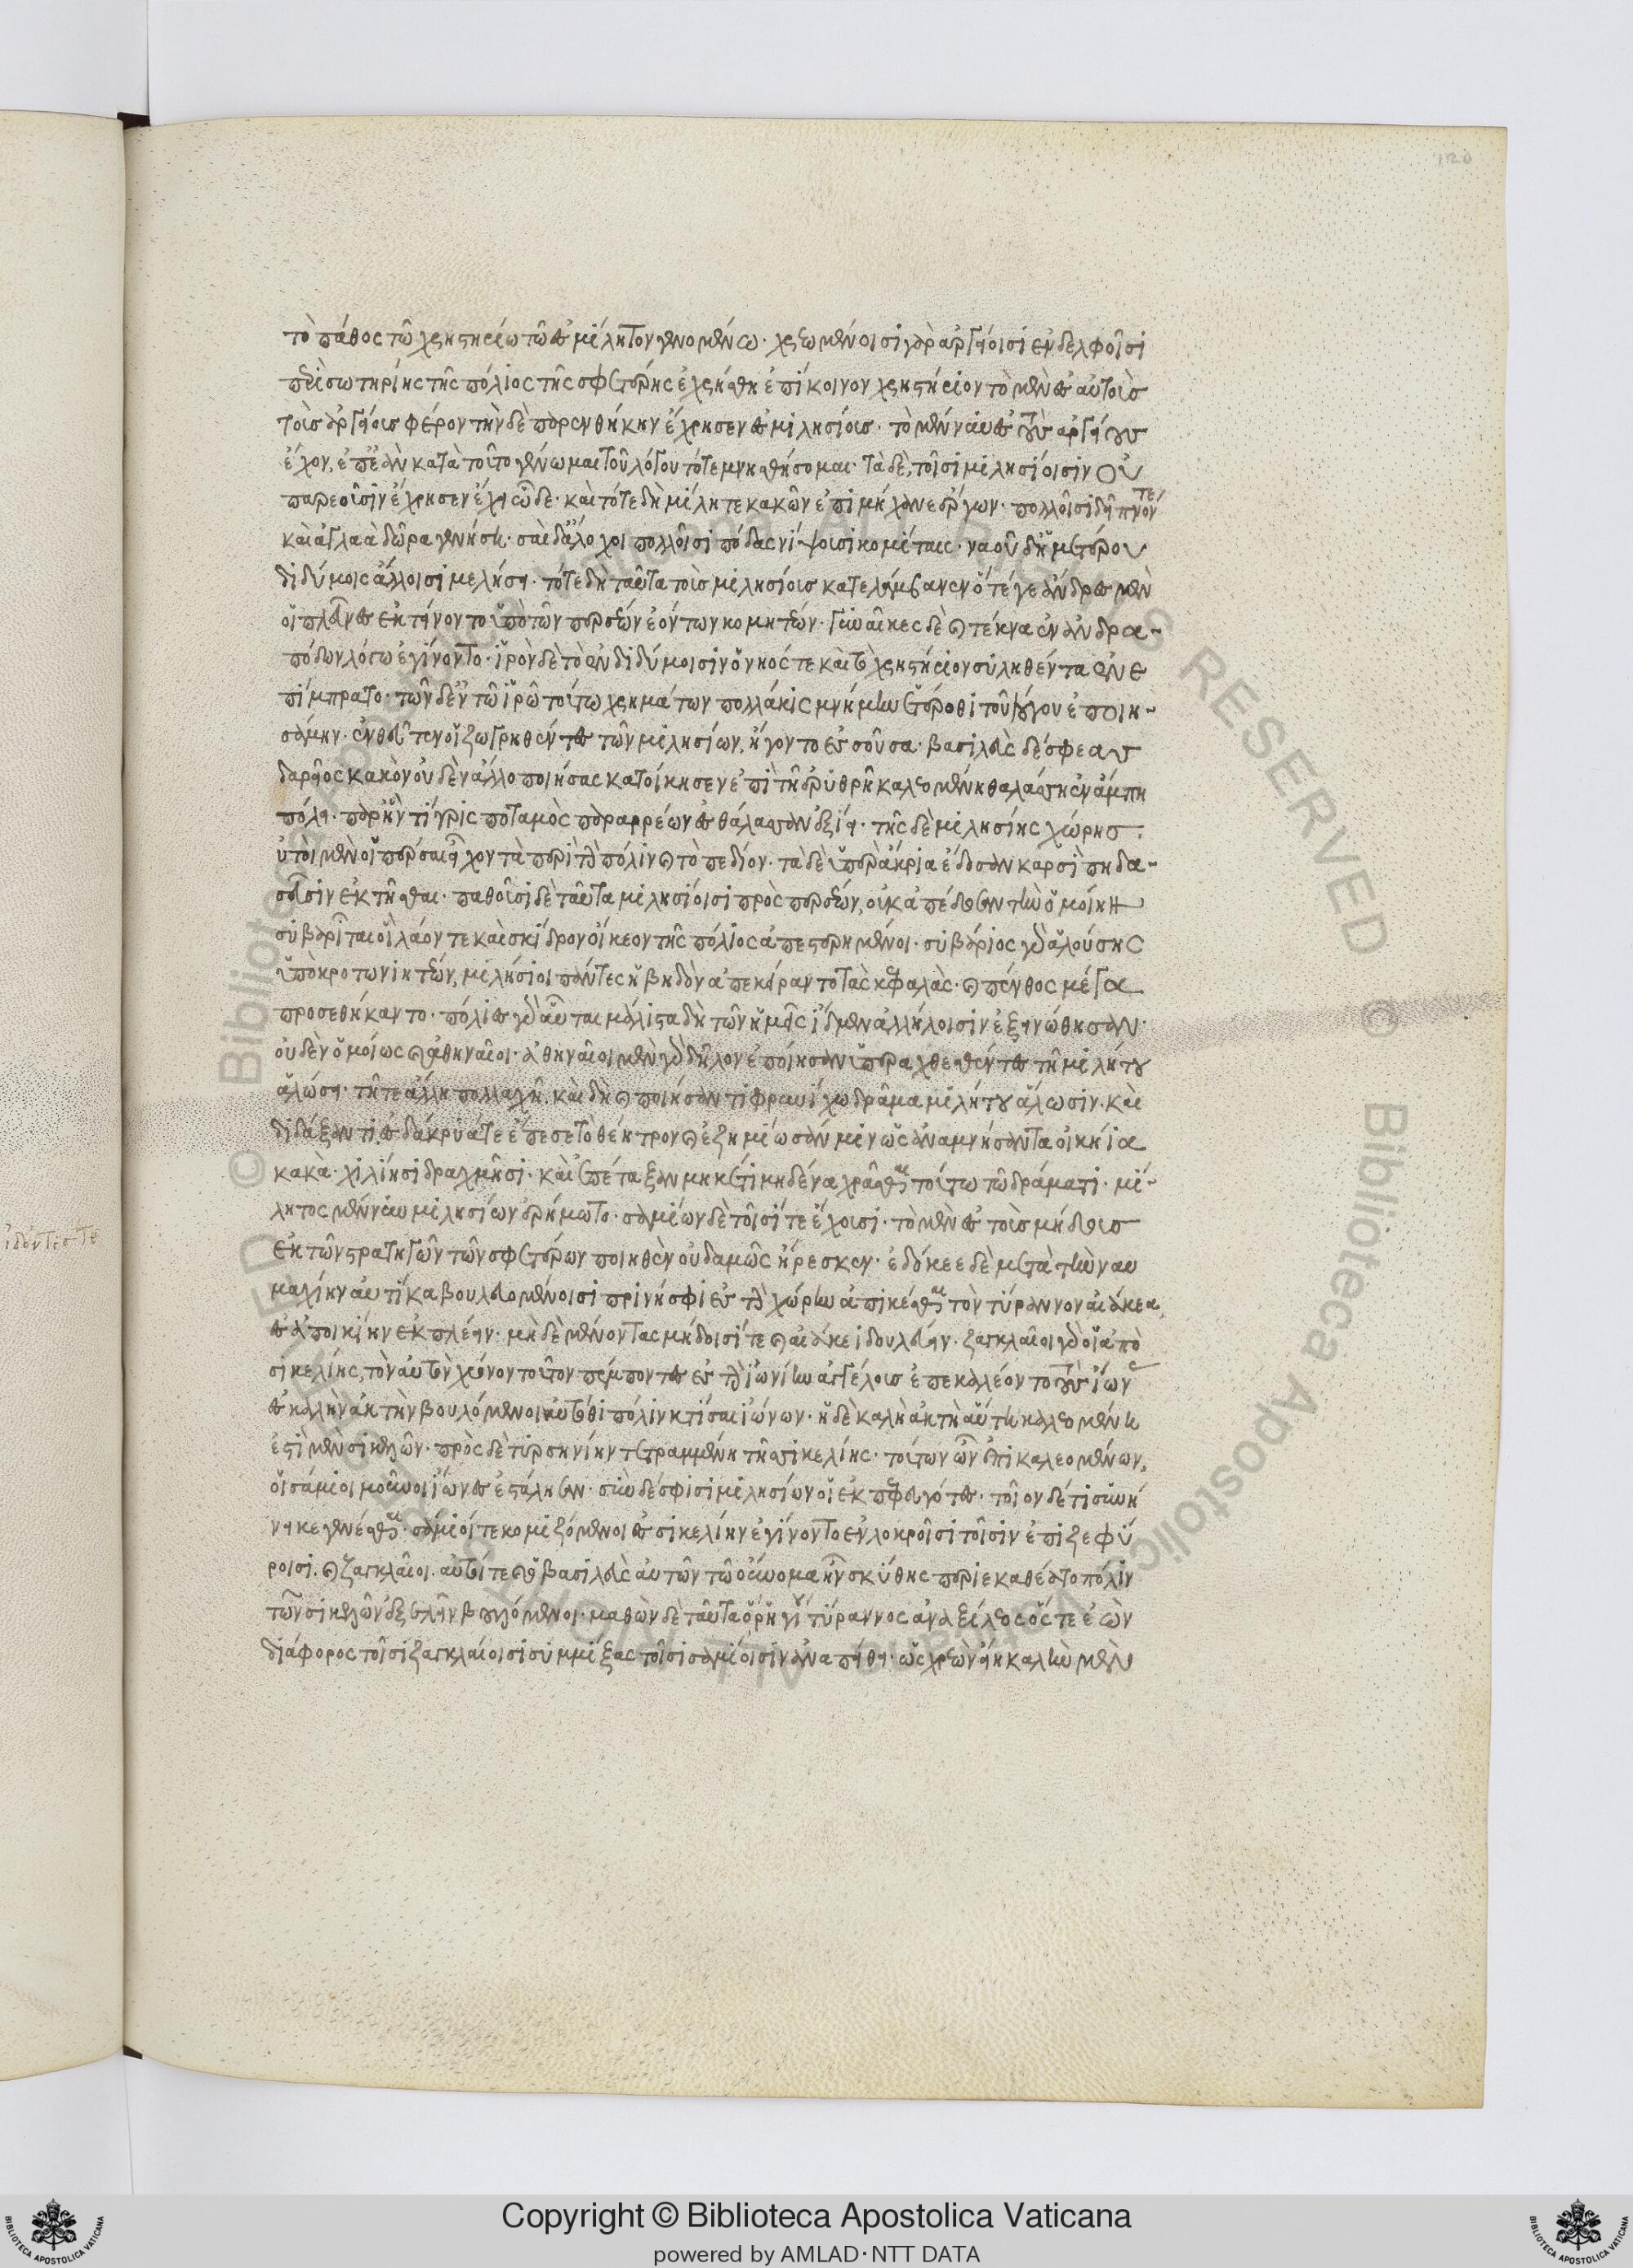 τὸ πάθος τῶ χρηστηρίω τῶ ἐς μίλητον γενομένω· χρεωμένοισι γὰρ ἀργείοισι ἐν δελφοῖσι
περὶ σωτηρίης τῆς πόλιος τῆς σφετέρης ἐχρήσθη ἐπίκοινον χρηστήριον τὸ μὲν ἐς αὐτοὺς
τοὺς ἀργείους φέρον τὴν δὲ παρενθήκην ἔχρησεν ἐς μιλησίους· τὸ μέν νυν ἐς τοὺς ἀργείους
ἔχον, ἐπεὰν κατὰ τοῦτο γένωμαι τοῦ λόγου τότε μνησθήσομαι· τὰ δὲ, τοῖσι μιλησίοισιν οὐ
παρεοῦσιν ἔχρησεν ἔχει ὧδε· καὶ τότε δὴ μίλητε κακῶν ἐπιμήχανε ἔργων· πολλοῖσι δεῖπνόν τε
καὶ ἀγλαὰ δῶρα γενήση· σαὶ δ' ἄλοχοι πολλοῖσι πόδας νίψουσι κομήταις· νηοῦ δ' ἡμετέρου
διδύμοις ἄλλοισι μελήσει· τότε δὴ ταῦτα τοὺς μιλησίους κατελάμβανεν ὅτέ γε ἄνδρες μὲν
οἱ πλεῦνες ἐκτείνοντο ὑπὸ τῶν περσέων ἐόντων κομητέων· γυναῖκες δὲ καὶ τέκνα ἐν ἀνδρα-
πόδων λόγω ἐγίνοντο· ἱρὸν δὲ τὸ ἐν διδύμοισιν ὁ νηός τε καὶ τὸ χρηστήριον συληθέντα ἐνε
πίμπρατο· τῶν δ' ἐν τῶ ἱρῶ τούτω χρημάτων πολλάκις μνήμην ἑτέρωθι τοῦ λόγου ἐποιη-
σάμην· ἐνθεῦτεν οἱ ζωγρηθέντες τῶν μιλησίων, ἤγοντο ἐς σοῦσα· βασιλεὺς δέ σφεας
δαρεῖος κακὸν οὐδὲν ἄλλο ποιήσας κατοίκησεν ἐπὶ τῆ ἐρυθρῆ καλεομένη θαλάσση ἐν ἄμπη
πόλει· παρ' ἣν τίγρις ποταμὸς παραρρέων ἐς θάλασσαν ἐξίει· τῆς δὲ μιλησίης χώρης
αὐτοὶ μὲν οἱ πέρσαι εἶχον τὰ περὶ τὴν πόλιν καὶ τὸ πεδίον· τὰ δὲ ὑπεράκρια ἔδοσαν καρσὶ πηδα-
σεῦσιν ἐκτῆσθαι· παθοῦσι δὲ ταῦτα μιλησίοισι πρὸς περσέων, οὐκ ἀπέδοσαν τὴν ὁμοίην
συβαρῖται οἳ λάον τε καὶ σκίδρον οἴκεον τῆς πόλιος ἀπεστερημένοι· συβάριος γὰρ ἁλούσης
ὑπὸ κροτωνιητέων, μιλήσιοι πάντες ἡβηδὸν ἀπεκείραντο τὰς κεφαλὰς· καὶ πένθος μέγα
προσεθήκαντο· πόλιες γὰρ αὗται μάλιστα δὴ τῶν ἡμεῖς ἴδμεν ἀλλήλοισιν ἐξεινώθησαν·
οὐδὲν ὁμοίως καὶ ἀθηναῖοι· ἀθηναῖοι μὲν γὰρ δῆλον ἐποίησαν ὑπεραχθεσθέντες τῆ μιλήτου
ἁλώσει· τῆ τε ἄλλη πολλαχῆ, καὶ δὴ καὶ ποιήσαντι φρυνίχω δρᾶμα μιλήτου ἅλωσιν. καὶ
διδάξαντι, ἐς δάκρυά τε ἔπεσε τὸ θέητρον καὶ ἐζημίωσάν μιν ὡς ἀναμνήσαντα οἰκήια
κακὰ· χιλίησι δραχμῆσι· καὶ ἐπέταξαν μηκέτι μηδένα χρᾶσθαι τούτω τῶ δράματι· μί-
λητος μέν νυν μιλησίων ἠρήμωτο· σαμίων δὲ τοῖσί τε ἔχουσι· τὸ μὲν ἐς τοὺς μήδους
ἐκ τῶν στρατηγῶν τῶν σφετέρων ποιηθὲν οὐδαμῶς ἤρεσκεν· ἐδόκεε δὲ μετὰ τὴν ναυ
μαχίην αὐτίκα βουλευομένοισι πρὶν ἤ σφι ἐς τὴν χώρην ἀπικέσθαι τὸν τύραννον αἰάκεα,
ἐς ἀποικίην ἐκπλέειν· μὴ δὲ μένοντας μήδοισί τε καὶ αἰάκει δουλεύειν· ζαγκλαῖοι γὰρ οἱ ἀπὸ
σικελίης, τὸν αὐτὸν χρόνον τοῦτον πέμποντες ἐς τὴν ἰωνίην ἀγγέλους ἐπεκαλέοντο τοὺς ἴωνας
ἐς καλὴν ἀκτὴν βουλόμενοι αὐτόθι πόλιν κτίσαι ἰώνων· ἡ δὲ καλὴ ἀκτὴ αὕτη καλεομένη
ἐστὶ μὲν σικελῶν· πρὸς δὲ τυρσηνίην τετραμμένη τῆς σικελίης· τούτων ὦν ἐπικαλεομένων,
οἱ σάμιοι μοῦνοι ἰώνων ἐστάλησαν· σὺν δέ σφισι μιλησίων οἱ ἐκπεφευγότες· τοῖον δέ τι συνή
νεικε γενέσθαι· σάμιοί τε κομιζόμενοι ἐς σικελίην ἐγίνοντο ἐν λοκροῖσι τοῖσιν ἐπιζεφυ
ροισι. καὶ ζαγκλαῖοι. αὐτοί τε καὶ ὁ βασιλεὺς αὐτῶν τῶ οὔνομα ἦν σκύθης περιεκαθέατο πόλιν
τῶν σικελῶν ἐξελεῖν βουλόμενοι· μαθὼν δὲ ταῦτα ὁ ῥηγίου τύραννος ἀναξίλεως ὥστε ἐὼν
διάφορος τοῖσι ζαγκλαίοισι συμμίξας τοῖσι σαμίοισιν ἀναπείθει· ὡς χρεὼν εἴη καλὴν μὲν